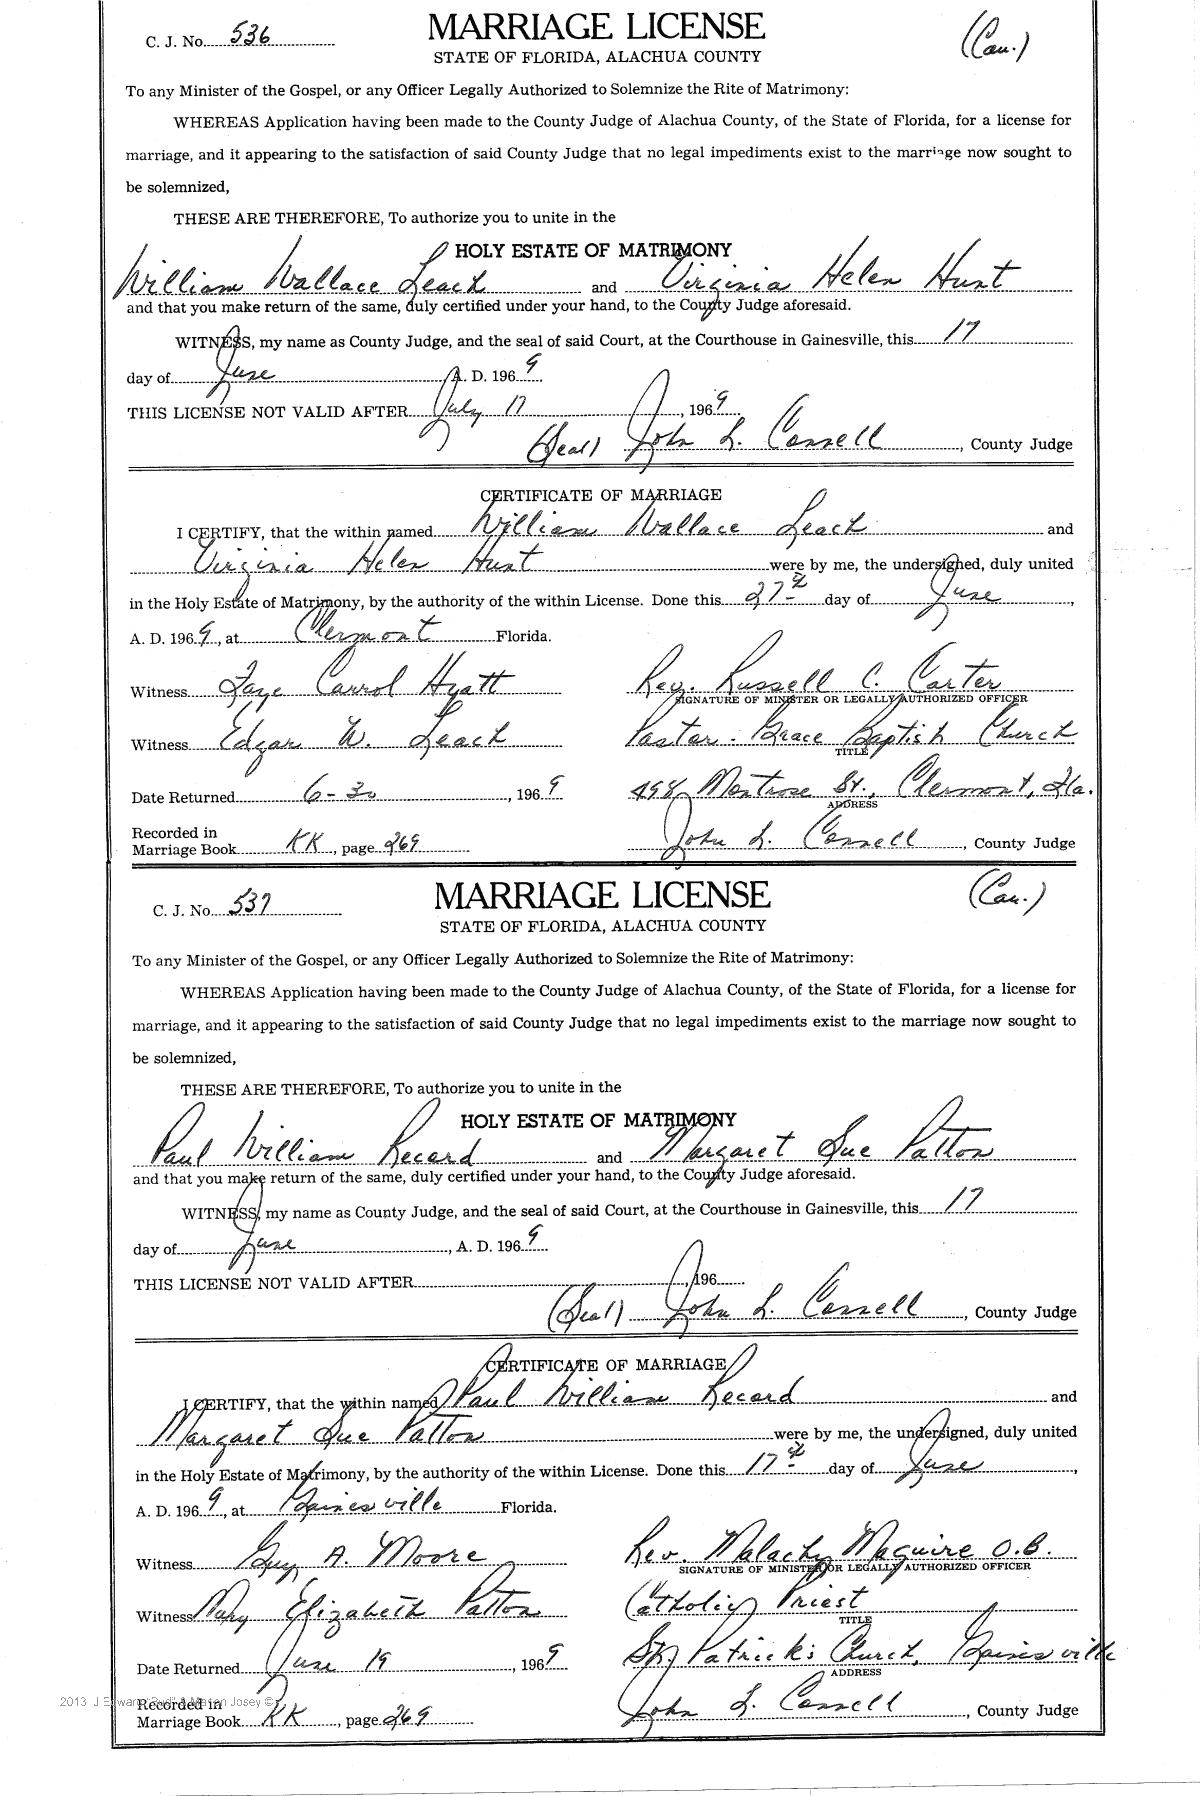 C. J. No. 536
MARRIAGE LICENSE
(Cau.)
STATE OF FLORIDA, ALACHUA COUNTY
To any Minister of the Gospel, or any Officer Legally Authorized to Solemnize the Rite of Matrimony:
WHEREAS Application having been made to the County Judge of Alachua County, of the State of Florida, for a license for
marriage, and it appearing to the satisfaction of said County Judge that no legal impediments exist to the marriage now sought to
be solemnized,
THESE ARE THEREFORE, To authorize you to unite in the
HOLY ESTATE OF MATRIMONY
William Wallace Leach and Virginia Helen Hunt
and that you make return of the same, duly certified under your hand, to the County Judge aforesaid.
WITNESS, my name as County Judge, and the seal of said Court, at the Courthouse in Gainesville, this 17
day of June A. D. 1969
THIS LICENSE NOT VALID AFTER July 17, 1969
(Seal) John L. Connell, County Judge
CERTIFICATE OF MARRIAGE
I CERTIFY, that the within named William Wallace Leach and
Virginia Helen Hunt were by me, the undersigned, duly united
in the Holy Estate of Matrimony, by the authority of the within License. Done this 27th day of June,
A. D. 1969, at Clermont Florida.
Witness Faye Carrol Hyatt Rev. Russell C. Carter
SIGNATURE OF MINISTER OR LEGALLY AUTHORIZED OFFICER
Witness Edgar W. Leach Pastor - Grace Baptist Church
TITLE
Date Returned 6-30, 1969 498 Montrose St., Clermont, Fla.
ADDRESS
Recorded in
Marriage Book KK, page 269 John L. Connell, County Judge
C. J. No. 537
MARRIAGE LICENSE
(Cau.)
STATE OF FLORIDA, ALACHUA COUNTY
To any Minister of the Gospel, or any Officer Legally Authorized to Solemnize the Rite of Matrimony:
WHEREAS Application having been made to the County Judge of Alachua County, of the State of Florida, for a license for
marriage, and it appearing to the satisfaction of said County Judge that no legal impediments exist to the marriage now sought to
be solemnized,
THESE ARE THEREFORE, To authorize you to unite in the
HOLY ESTATE OF MATRIMONY
Paul William Record and Margaret Sue Patton
and that you make return of the same, duly certified under your hand, to the County Judge aforesaid.
WITNESS, my name as County Judge, and the seal of said Court, at the Courthouse in Gainesville, this 17
day of June, A. D. 1969
THIS LICENSE NOT VALID AFTER , 196
(Seal) John L. Connell, County Judge
CERTIFICATE OF MARRIAGE
I CERTIFY, that the within named Paul William Record and
Margaret Sue Patton were by me, the undersigned, duly united
in the Holy Estate of Matrimony, by the authority of the within License. Done this 17th day of June,
A. D. 1969, at Gainesville Florida.
Witness Guy A. Moore Rev. Malachy Maguire O.B.
SIGNATURE OF MINISTER OR LEGALLY AUTHORIZED OFFICER
Witness Mary Elizabeth Patton Catholic Priest
TITLE
Date Returned June 19, 1969 St. Patrick's Church, Gainesville
ADDRESS
2013 J Edward "Bud" & Mason Josey ©
Recorded in
Marriage Book KK, page 269 John L. Connell, County Judge